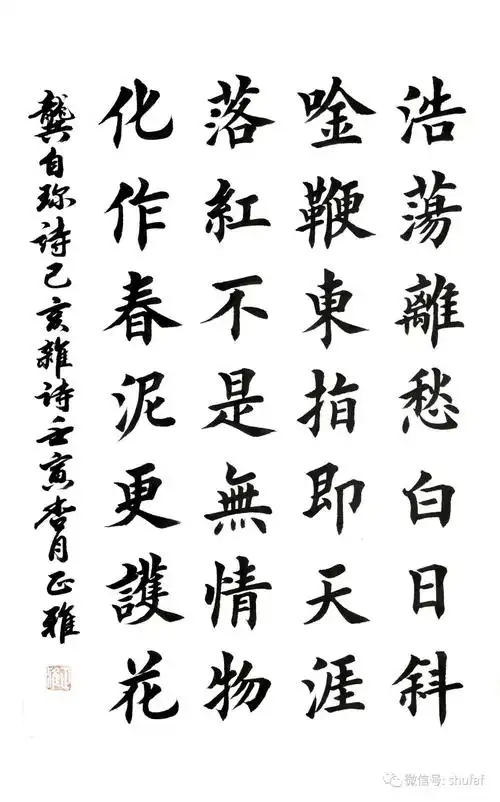 浩蕩離愁白日斜
唫鞭東指即天涯
落紅不是無情物
化作春泥更護花
龔自珍詩己亥雜詩壬寅杏月正雅
微信号: shufaf